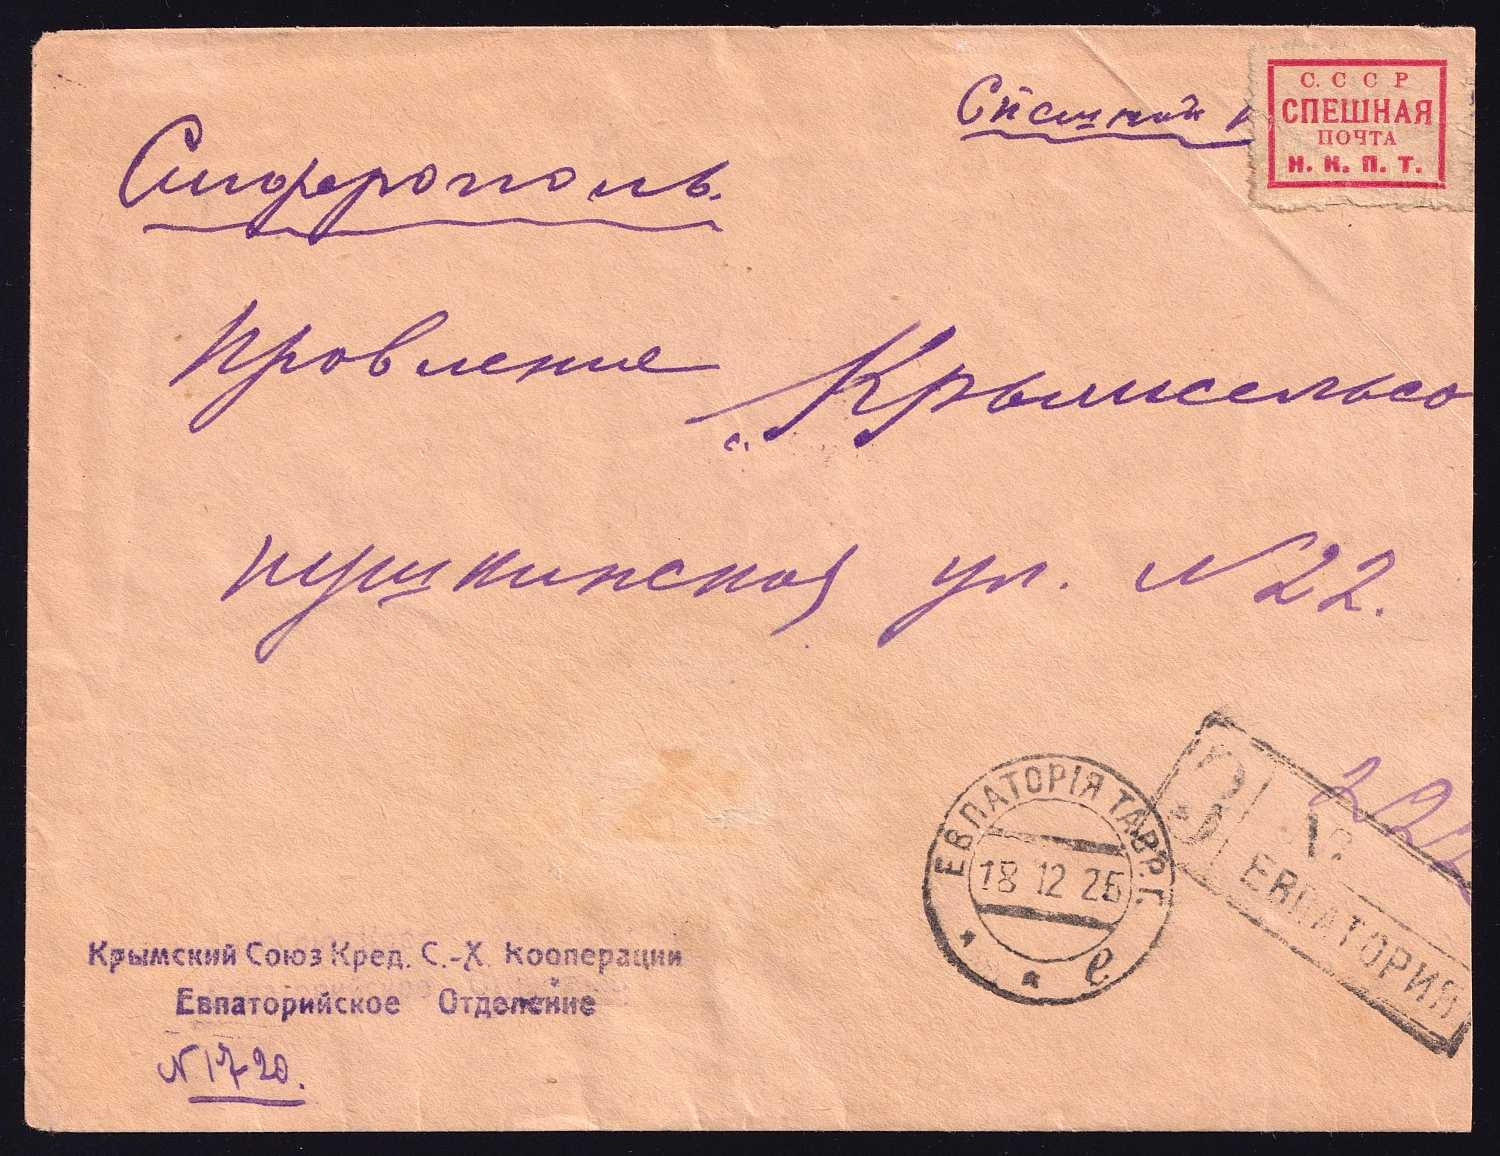 Спешной
С. С С Р
СПЕШНАЯ
ПОЧТА
Н. К. П. Т.
Симферополь.
Провление „Крымсельсо
с.
Пушкинская ул. N 22.
ЕВПАТОРІЯ ТАВР. Г.
18 12 25
е
З
№
ЕВПАТОРИЯ
Крымский Союз Кред. С.-Х. Кооперации
Евпаторийское Отделение
N 1720.